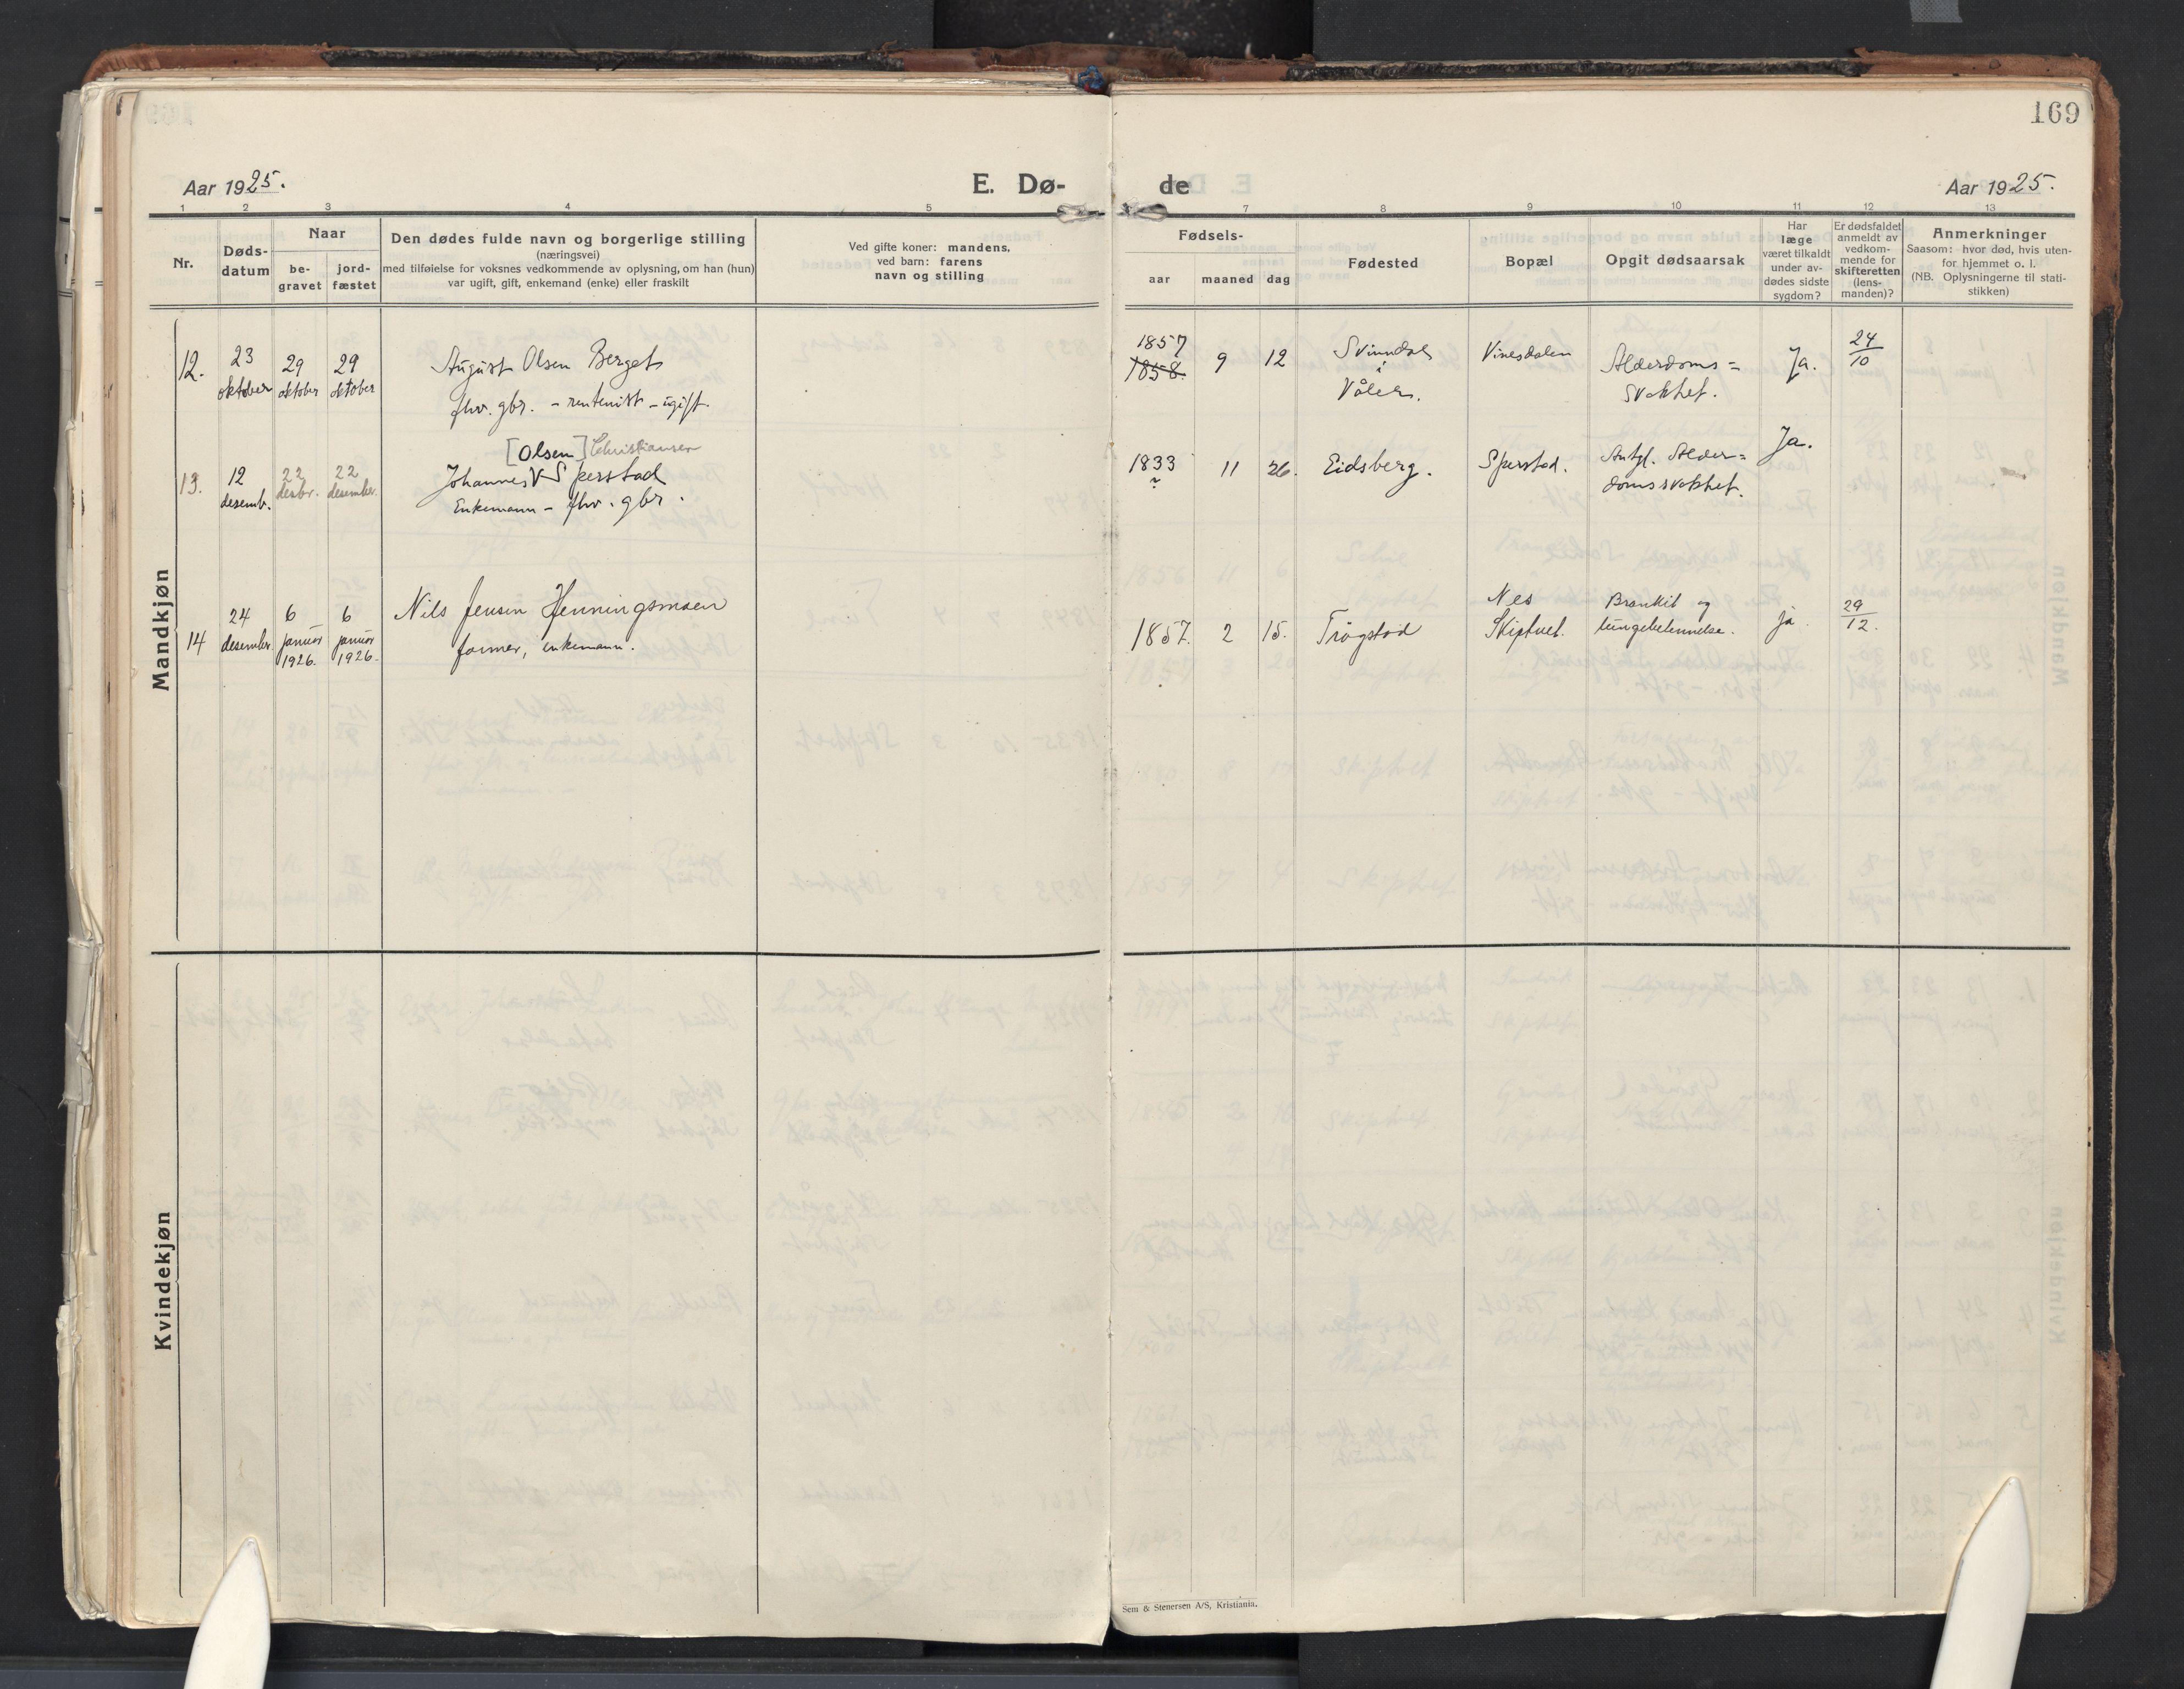 169
Aar 1925.
E. Dø-
de
Aar 1925.
1 2 3 4 5
7 8 9 10 11 12 13
Nr.
Døds-
datum
Naar
be-
gravet
jord-
fæstet
Den dødes fulde navn og borgerlige stilling
(næringsvei)
med tilføielse for voksnes vedkommende av oplysning, om han (hun)
var ugift, gift, enkemand (enke) eller fraskilt
Ved gifte koner: mandens,
ved barn: farens
navn og stilling
Fødsels-
aar maaned dag
Fødested
Bopæl
Opgit dødsaarsak
Har
læge
været tilkaldt
under av-
dødes sidste
sygdom?
Er dødsfaldet
anmeldt av
vedkom-
mende for
skifteretten
(lens-
manden)?
Anmerkninger
Saasom: hvor død, hvis uten-
for hjemmet o. l.
(NB. Oplysningerne til stati-
stikken)
Mandkjøn
12.
23
oktober
29
oktober
29
oktober
August Olsen Berget
fhv. gbr. - rentenist - ugift.
1857
1858.
9
12
Svinndal
i
Våler.
Vinesdalen
Alderdoms=
svakhet.
Ja.
24
10
13.
12
desemb.
22
desbr.
22
desember
[Olsen] Christiansen
Johannes V Sperstad
Enkemann - fhv. gbr.
1833
11
26.
Eidsberg.
Sperstad.
Antgl. Alder=
domssvakhet.
Ja.
14
24
desember
6
januar
1926.
6
januar
1926.
Nils Jensen Henningsmoen
former, enkemann.
1857.
2
15.
Trøgstad
Nes
Skiptvet.
Bronkit og
lungebetennelse.
ja
29
12.
Kvindekjøn
Sem & Stenersen A/S, Kristiania.